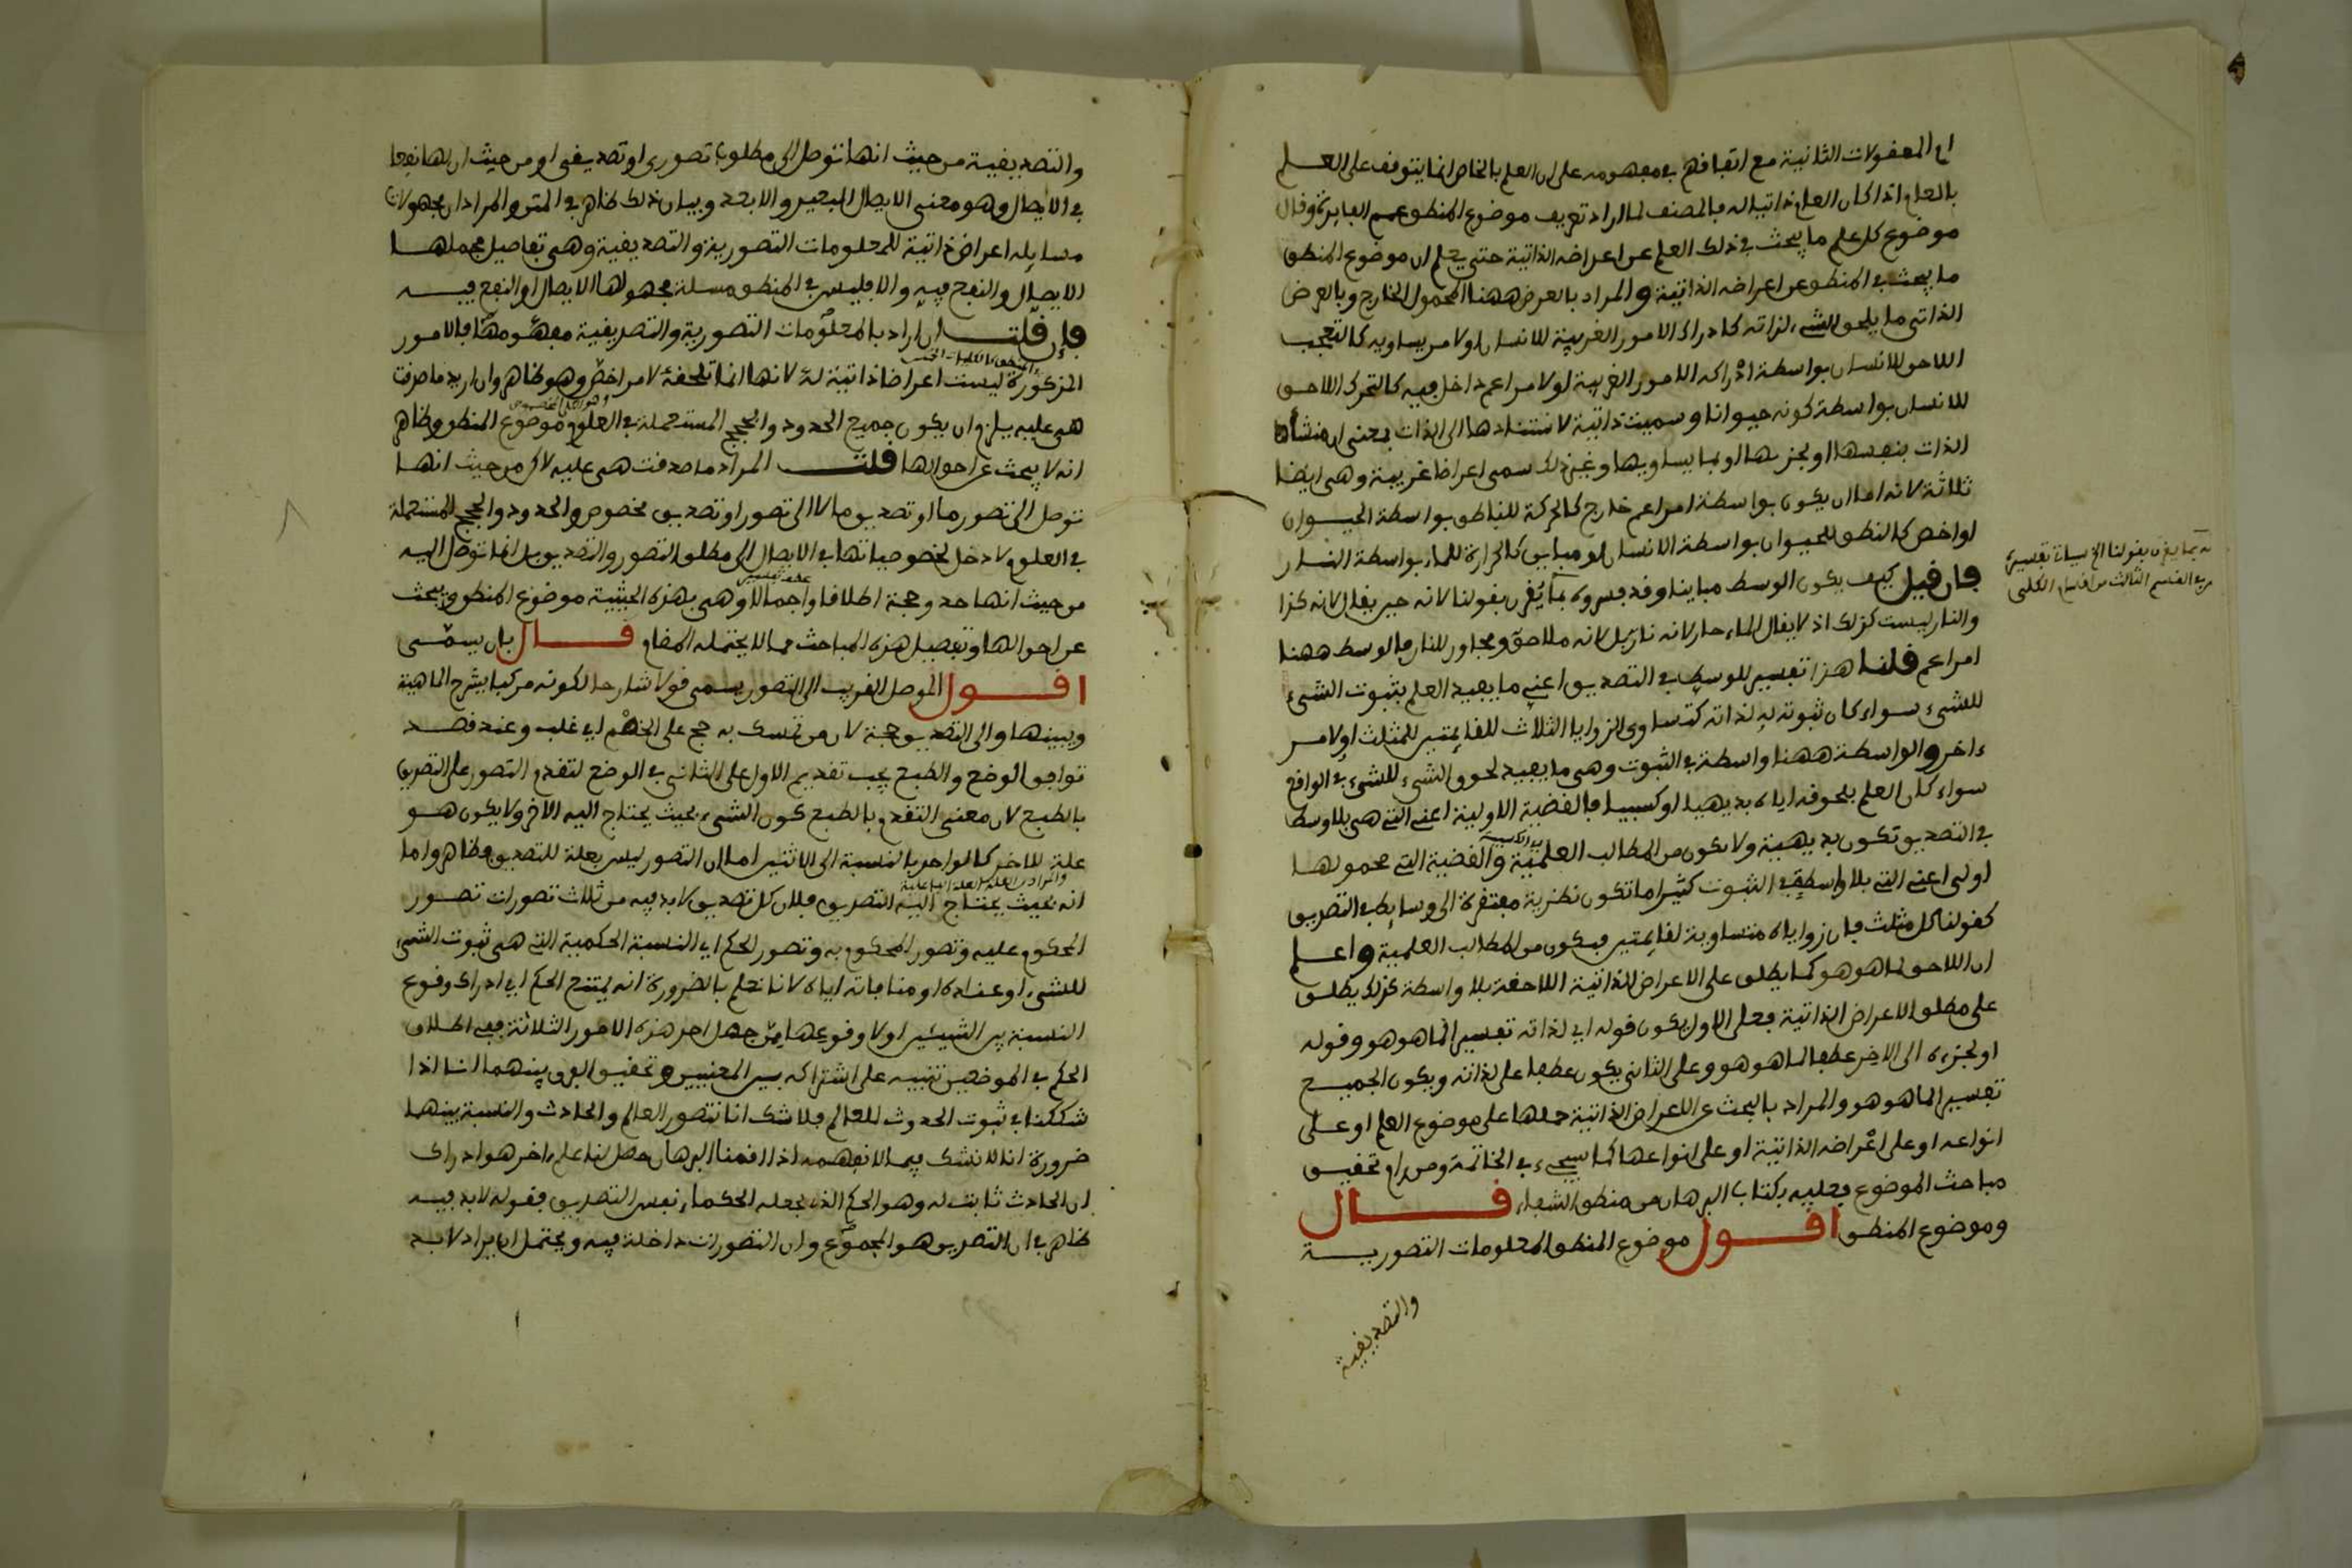 اي المعقولات الثانية مع اتفاقهم في مفهومه على ان العلم بالخاص انما يتوقف على العلم
بالعام اذا كان العام ذاتيا له فالمصنف لما اراد تعريف موضوع المنطق عمم الفايدة وقال
موضوع كل علم ما يبحث في ذلك العلم عن اعراضه الذاتية حتى يعلم ان موضوع المنطق
ما يبحث في المنطق عن اعراضه الذاتية والمراد بالعرض ههنا المحمول الخارج وبالعرض
الذاتي ما يلحق الشيء لذاته كادراك الامور الغريبة للانسان او لامر يساويه كالتعجب
اللاحق للانسان بواسطة ادراكه الامور الغريبة او لامر اعم داخل فيه كالتحرك اللاحق
للانسان بواسطة كونه حيوانا وسميت ذاتية لاستنادها الى الذات بمعنى ان منشأها
الذات بنفسها او بجزءها او بما يساويها وغير ذلك سمى اعراضا غريبة وهي ايضا
ثلاثة لانه اما ان يكون بواسطة امر اعم خارج كالحركة للناطق بواسطة الحيوان
او اخص كالنطق للحيوان بواسطة الانسان او مباين كالحرارة للماء بواسطة النار
فان قيل كيف يكون الوسط مباينا وقد فسروه بما يقرن بقولنا لانه حين يقال لانه كذا
والنار ليست كذلك اذ لا يقال الماء حار لانه نار بل لانه ملاصق ومجاور للنار فالوسط ههنا
امر اعم قلنا هذا تفسير للوسط في التصديق اعني ما يفيد العلم بثبوت الشيء
للشيء سواء كان ثبوته له لذاته كتساوي الزوايا الثلاث للقايمتين للمثلث او لامر
ءاخر والواسطة ههنا واسطة في الثبوت وهي ما يفيد لحوق الشيء للشيء في الواقع
سواء كان العلم بلحوقه اياه بديهيا او كسبيا فالقضية الاولية اعني التي هي بلا وسط
في التصديق تكون بديهية ولا تكون من المطالب العلمية والقضية التي محمولها
اولى اعني التي بلا واسطة في الثبوت كثيرا ما تكون نظرية مفتقرة الى وسايط في التصديق
كقولنا كل مثلث فان زواياه متساوية لقايمتين فيكون من المطالب العلمية واعلم
ان اللاحق لما هو هو كما يطلق على الاعراض الذاتية اللاحقة بلا واسطة كذلك يطلق
على مطلق الاعراض الذاتية فعلى الاول يكون قوله اي لذاته تفسير الما هو هو وقوله
او لجزءه الى الاخر عطفا لما هو هو وعلى الثاني يكون عطفا على لذاته ويكون الجميع
تفسير الما هو هو والمراد بالبحث عن الاعراض الذاتية حملها على موضوع العلم او على
انواعه او على اعراضه الذاتية او على انواعها كما سيجيء في الخاتمة ومن رام تحقيق
مباحث الموضوع فعليه بكتاب البرهان من منطق الشفاء قال
وموضوع المنطق اقول موضوع المنطق المعلومات التصورية
والتصديقية
والتصديقية من حيث انها توصل الى مطلوب تصوري او تصديقي او من حيث ان لها نفعا
في الايصال وهو معنى الايصال البعيد والابعد وبيان ذلك ظاهر في المتن والمراد ان محمولات
مسايله اعراض ذاتية للمعلومات التصورية والتصديقية وهي تفاصيل مجملها
الايصال والنفع فيه والا فليس في المنطق مسلة محمولها الايصال او النفع فيه
فان قلت ان اراد بالمعلومات التصورية والتصديقية مفهومها فالامور
المذكورة ليست اعراضا ذاتية له لانها انما تلحقه لامر اخص وهو ظاهر وان اريد ما صدقت
هي عليه يلزم ان يكون جميع الحدود والحجج المستعملة في العلوم موضوع المنطق وظاهر
انه لا يبحث عن احوالها قلت المراد ما صدقت هي عليه لاكن من حيث انها
توصل الى تصور ما او تصديق ما لا الى تصور او تصديق مخصوص والحدود والحجج المستعملة
في العلوم لا دخل لخصوصياتها في الايصال الى مطلق التصور والتصديق بل انما توصل اليه
من حيث انها حد وحجة اطلاقا واجمالا وهي بهذه الحيثية موضوع المنطق ويبحث
عن احوالها وتفصيل هذه المباحث مما لا يحتمله المقام قال بان يسمى
اقول الموصل القريب الى التصور يسمى قولا شارحا لكونه مركبا يشرح الماهية
ويبينها والى التصديق حجة لان من تمسك به حج على الخصم اي غلب وعند قصد
توافق الوضع والطبع يجب تقديم الاول على الثاني في الوضع لتقدم التصور على التصديق
بالطبع لان معنى التقدم بالطبع كون الشيء بحيث يحتاج اليه الاخر ولا يكون هو
علة للاخر كالواحد بالنسبة الى الاثنين اما ان التصور ليس بعلة للتصديق فظاهر واما
انه بحيث يحتاج اليه التصديق فلان كل تصديق لا بد فيه من ثلاث تصورات تصور
المحكوم عليه وتصور المحكوم به وتصور الحكم اي النسبة الحكمية التي هي ثبوت الشيء
للشيء او عناده او منافاته اياه لانا نعلم بالضرورة انه يمتنع الحكم اي ادراك وقوع
النسبة بين الشيئين او لا وقوعها ممن جهل احد هذه الامور الثلاثة ففي اطلاق
الحكم في الموضعين تنبيه على اشتراكه بين المعنيين وتحقيق الفرق بينهما انا اذا
شككنا في ثبوت الحدوث للعالم فلا شك انا نتصور العالم والحادث والنسبة بينهما
ضرورة انا لا نشك فيما لا نفهمه اذا اقمنا البرهان حصل لنا علم ءاخر هو ادراك
ان الحادث ثابت له وهو الحكم الذي جعله الحكماء نفس التصديق فقوله لا بد فيه
ظاهر في ان التصديق هو المجموع وان التصورات داخلة فيه ويحتمل ان يراد لا بد